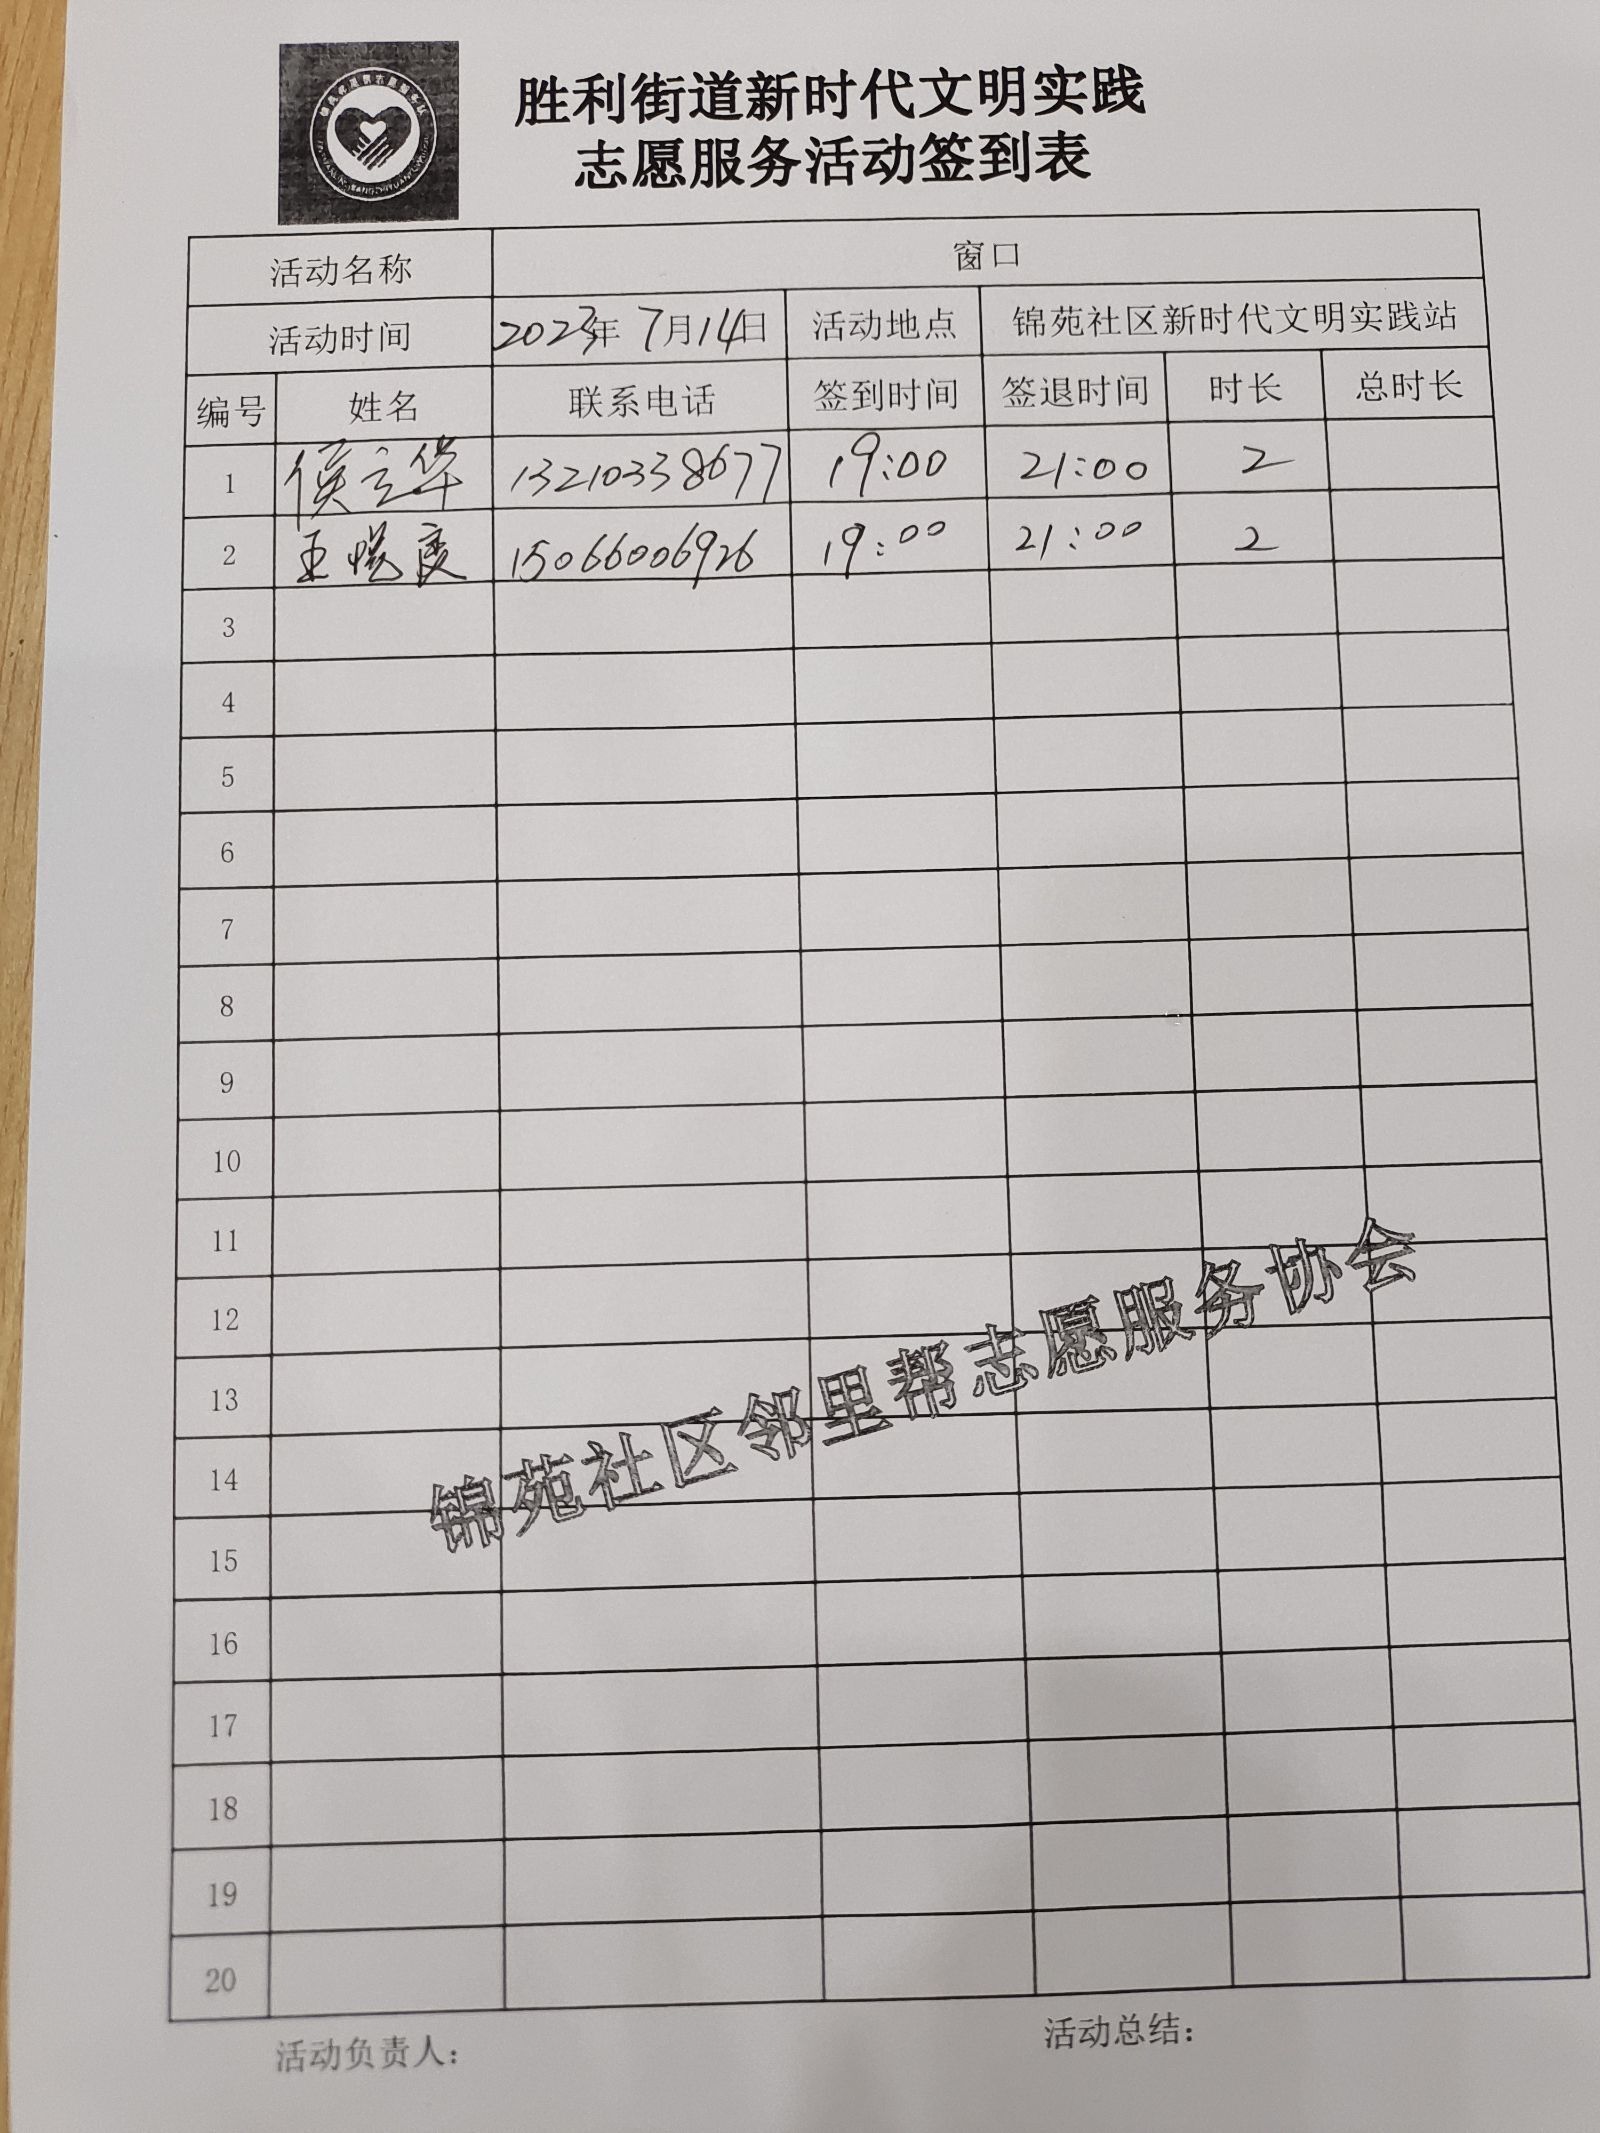 胜利街道新时代文明实践
志愿服务活动签到表
活动名称 窗口
活动时间 2023年 7月14日 活动地点 锦苑社区新时代文明实践站
编号 姓名 联系电话 签到时间 签退时间 时长 总时长
1 侯立华 13210338677 19:00 21:00 2
2 王 15066006926 19:00 21:00 2
3
4
5
6
7
8
9
10
11
12
13
14
15
16
17
18
19
20
锦苑社区邻里帮志愿服务协会
活动负责人: 活动总结: